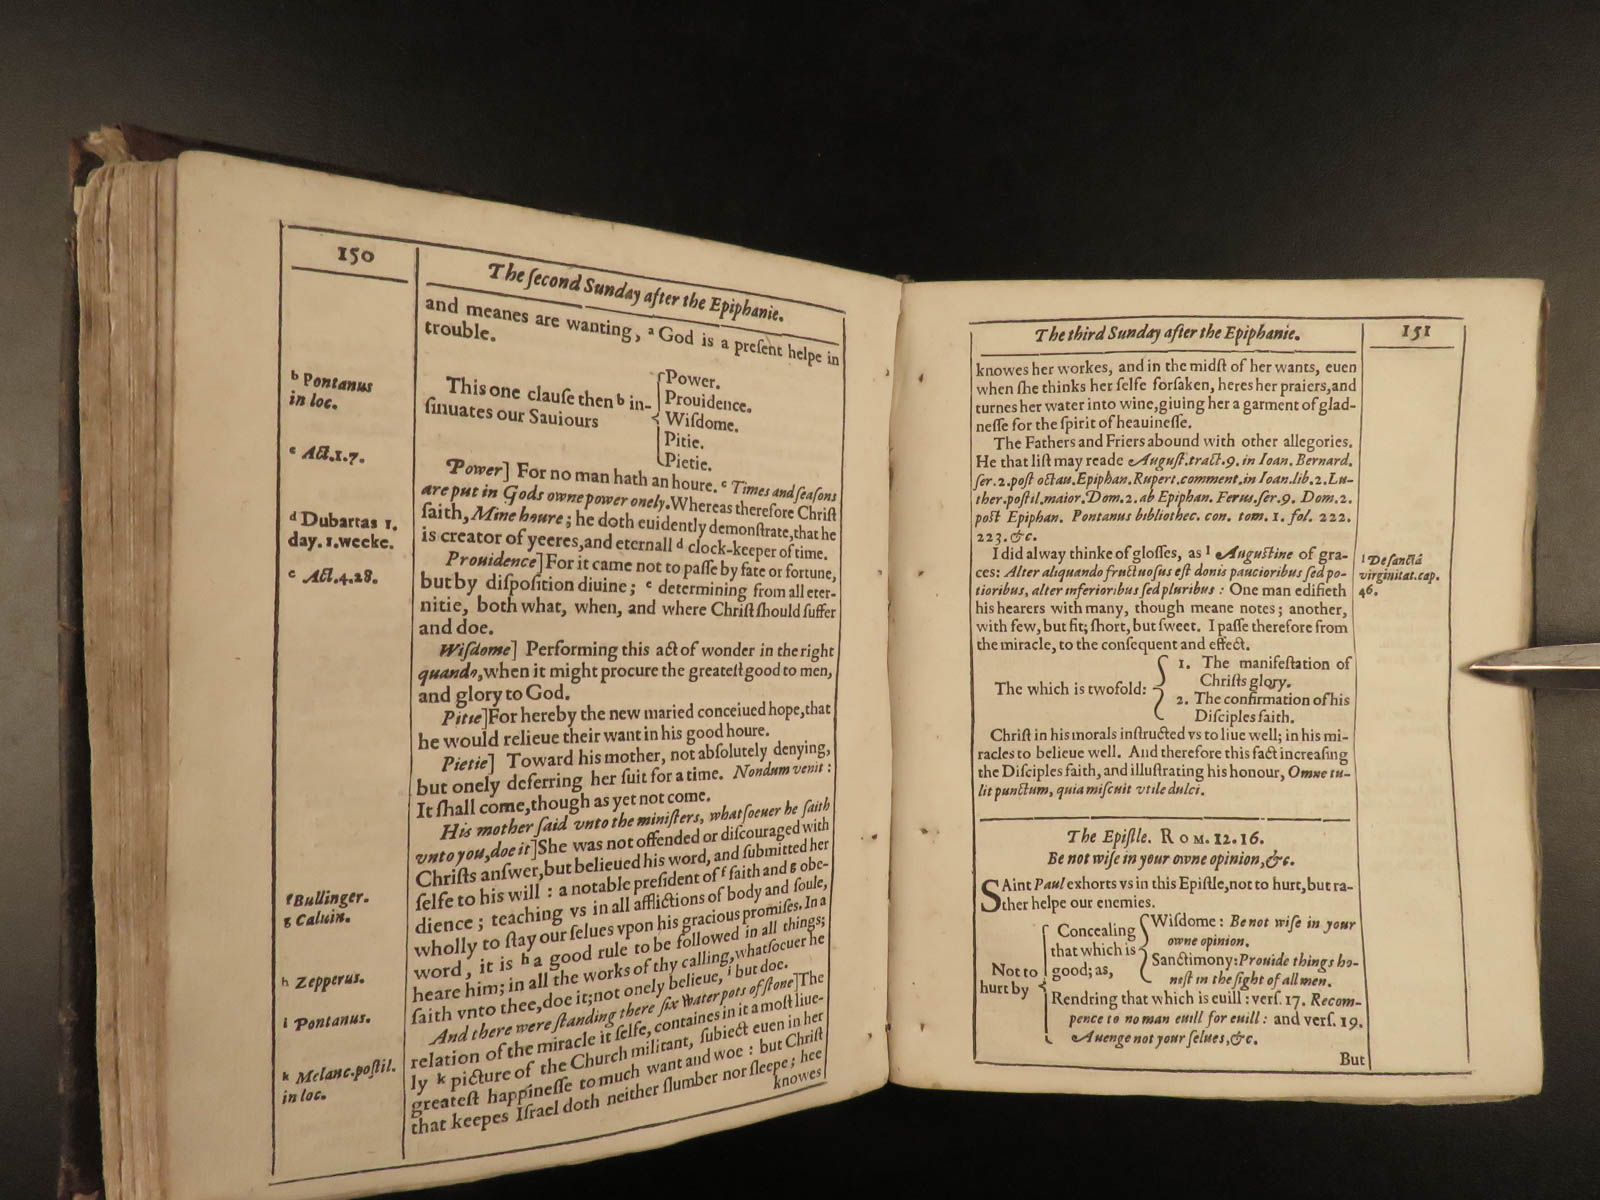 150
The ſecond Sunday after the Epiphanie.
and meanes are wanting, a God is a preſent helpe in
trouble.
This one clauſe then b in-
ſinuates our Sauiours
Power.
Prouidence.
Wiſdome.
Pitie.
Pietie.
b Pontanus
in loc.
Power] For no man hath an houre. c Times and ſeaſons
are put in Gods owne power onely. Whereas therefore Chriſt
ſaith, Mine houre; he doth euidently demonſtrate, that he
is creator of yeeres, and eternall d clock-keeper of time.
c Act.1.7.
d Dubartas 1.
day. 1. weeke.
Prouidence] For it came not to paſſe by fate or fortune,
but by diſpoſition diuine; e determining from all eter-
nitie, both what, when, and where Chriſt ſhould ſuffer
and doe.
e Act.4.28.
Wiſdome] Performing this act of wonder in the right
quando, when it might procure the greateſt good to men,
and glory to God.
Pitie] For hereby the new maried conceiued hope, that
he would relieue their want in his good houre.
Pietie] Toward his mother, not abſolutely denying,
but onely deferring her ſuit for a time. Nondum venit:
It ſhall come, though as yet not come.
His mother ſaid vnto the miniſters, whatſoeuer he ſaith
vnto you, doe it] She was not offended or diſcouraged with
Chriſts anſwer, but belieued his word, and ſubmitted her
ſelfe to his will : a notable preſident of f faith and g obe-
dience; teaching vs in all afflictions of body and ſoule,
wholly to ſtay our ſelues vpon his gracious promiſes. In a
word, it is h a good rule to be followed in all things;
heare him; in all the works of thy calling, whatſoeuer he
ſaith vnto thee, doe it; not onely belieue, i but doe.
f Bullinger.
g Caluin.
h Zepperus.
i Pontanus.
And there were ſtanding there ſix Water pots of ſtone] The
relation of the miracle it ſelfe, containes in it a moſt liue-
ly k picture of the Church militant, ſubiect euen in her
greateſt happineſſe to much want and woe : but Chriſt
that keepes Iſrael doth neither ſlumber nor ſleepe; hee
knowes
k Melanc. poſtil.
in loc.
The third Sunday after the Epiphanie.
151
knowes her workes, and in the midſt of her wants, euen
when ſhe thinks her ſelfe forſaken, heres her praiers, and
turnes her water into wine, giuing her a garment of glad-
neſſe for the ſpirit of heauineſſe.
The Fathers and Friers abound with other allegories.
He that liſt may reade Auguſt. tract. 9. in Ioan. Bernard.
ſer. 2. poſt octau. Epiphan. Rupert. comment. in Ioan. lib. 2. Lu-
ther. poſtil. maior. Dom. 2. ab Epiphan. Ferus. ſer. 9. Dom. 2.
poſt Epiphan. Pontanus bibliothec. con. tom. 1. fol. 222.
223. &c.
I did alway thinke of gloſſes, as l Auguſtine of gra-
ces: Alter aliquando fructuoſus eſt donis paucioribus ſed po-
tioribus, alter inferioribus ſed pluribus : One man edifieth
his hearers with many, though meane notes; another,
with few, but fit; ſhort, but ſweet. I paſſe therefore from
the miracle, to the conſequent and effect.
l De ſanctâ
virginitat. cap.
46.
The which is twofold:
1. The manifeſtation of
Chriſts glory.
2. The confirmation of his
Diſciples faith.
Chriſt in his morals inſtructed vs to liue well; in his mi-
racles to belieue well. And therefore this fact increaſing
the Diſciples faith, and illuſtrating his honour, Omne tu-
lit punctum, quia miſcuit vtile dulci.
The Epiſtle. ROM. 12. 16.
Be not wiſe in your owne opinion, &c.
SAint Paul exhorts vs in this Epiſtle, not to hurt, but ra-
ther helpe our enemies.
Not to
hurt by
Concealing
that which is
good; as,
Wiſdome : Be not wiſe in your
owne opinion.
Sanctimony: Prouide things ho-
neſt in the ſight of all men.
Rendring that which is euill : verſ. 17. Recom-
pence to no man euill for euill : and verſ. 19.
Auenge not your ſelues, &c.
But